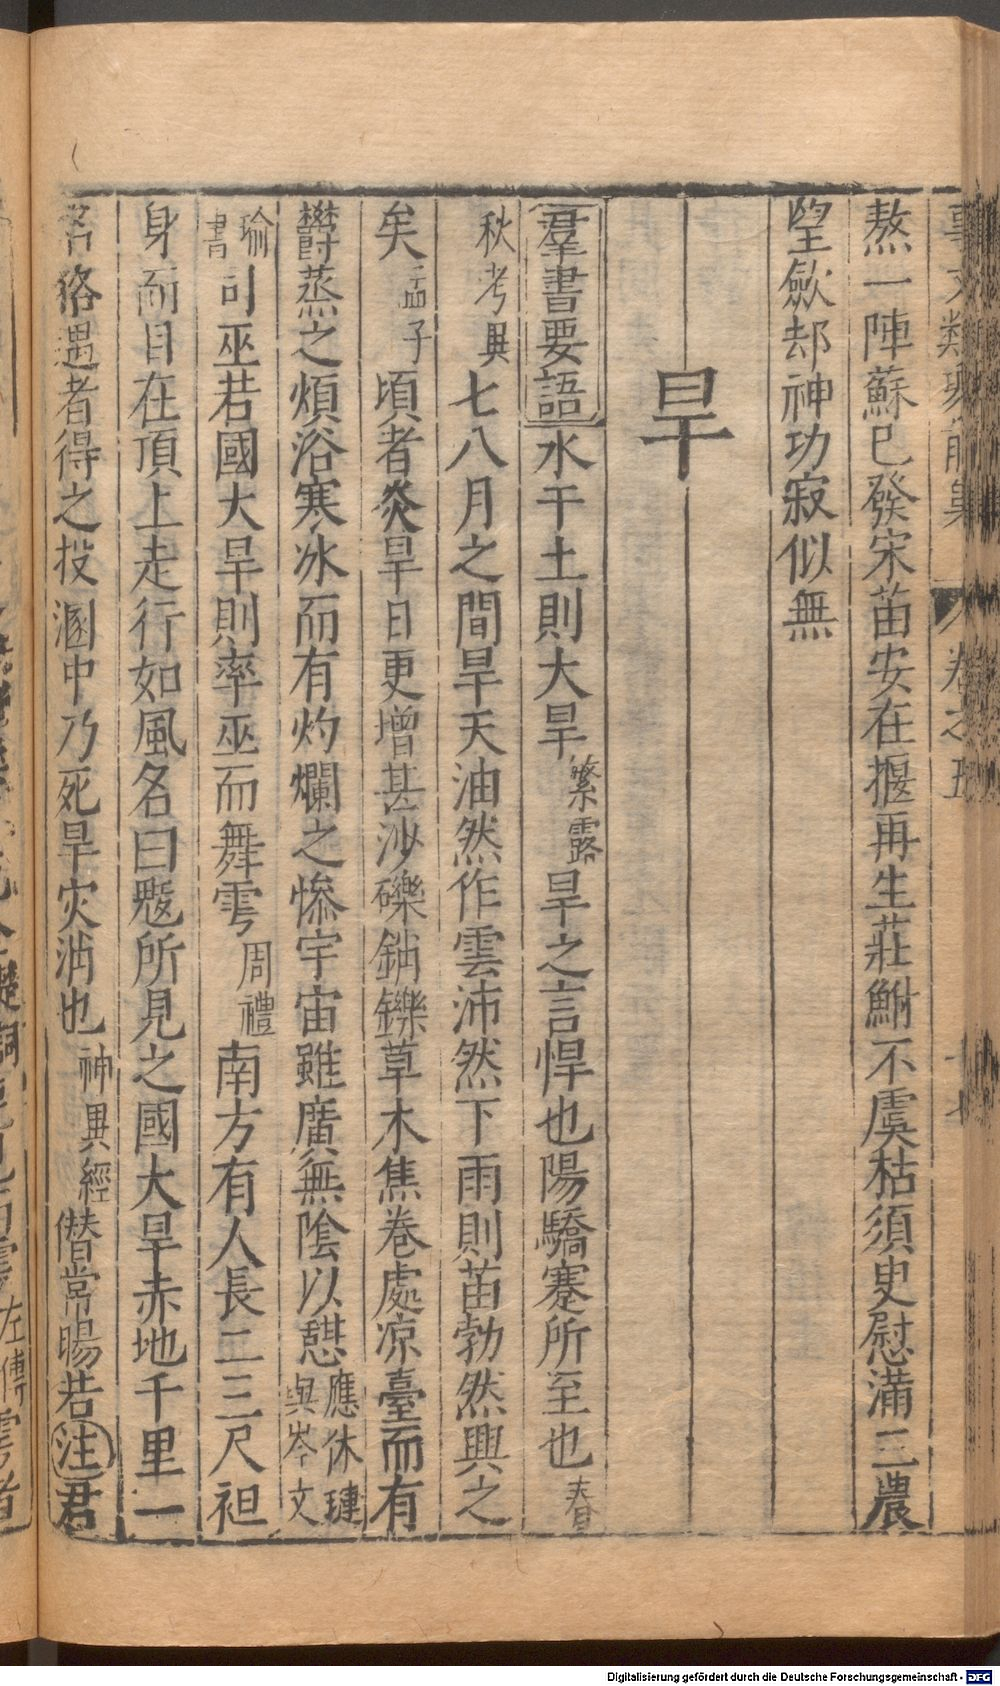 事文類聚前集 卷之五 十七
熬一陣蘇已發宋苗安在揠再生莊鮒不虞枯須史慰滿三農
望歛却神功寂似無
旱
羣書要語水干土則大旱繁露旱之言悍也陽驕蹇所至也春
秋考異七八月之間旱天油然作雲沛然下雨則苗勃然興之
矣孟子頃者炎旱日更增甚沙礫銷鑠草木焦卷處凉臺而有
欝蒸之煩浴寒氷而有灼爛之慘宇宙雖廣無陰以憇應休璉與岑文
瑜書司巫若國大旱則率巫而舞雩周禮南方有人長二三尺袒
身而目在頂上走行如風名曰䰠所見之國大旱赤地千里一
名狢遇者得之投溷中乃死旱灾消也神異經僭常暘若注君
Digitalisierung gefördert durch die Deutsche Forschungsgemeinschaft - DFG